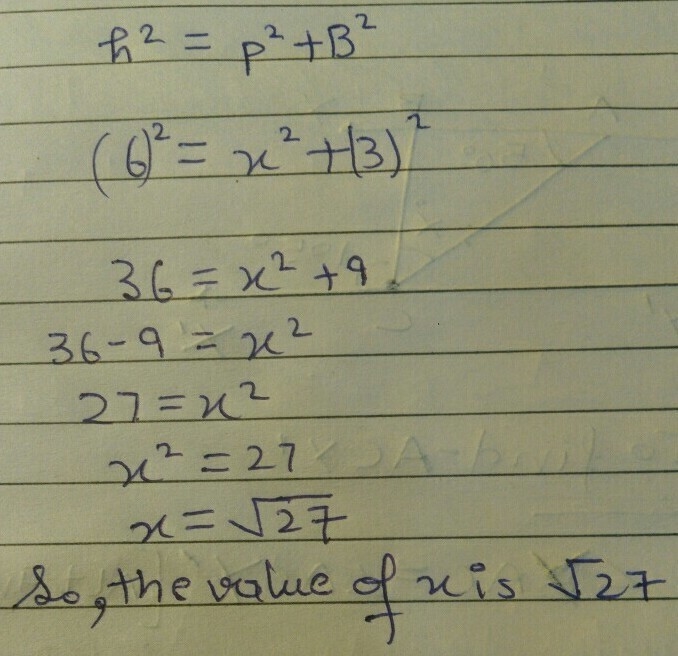 h² = p² + B²
(6)² = x² + (3)²
36 = x² + 9
36 - 9 = x²
27 = x²
x² = 27
x = √27
So, the value of x is √27